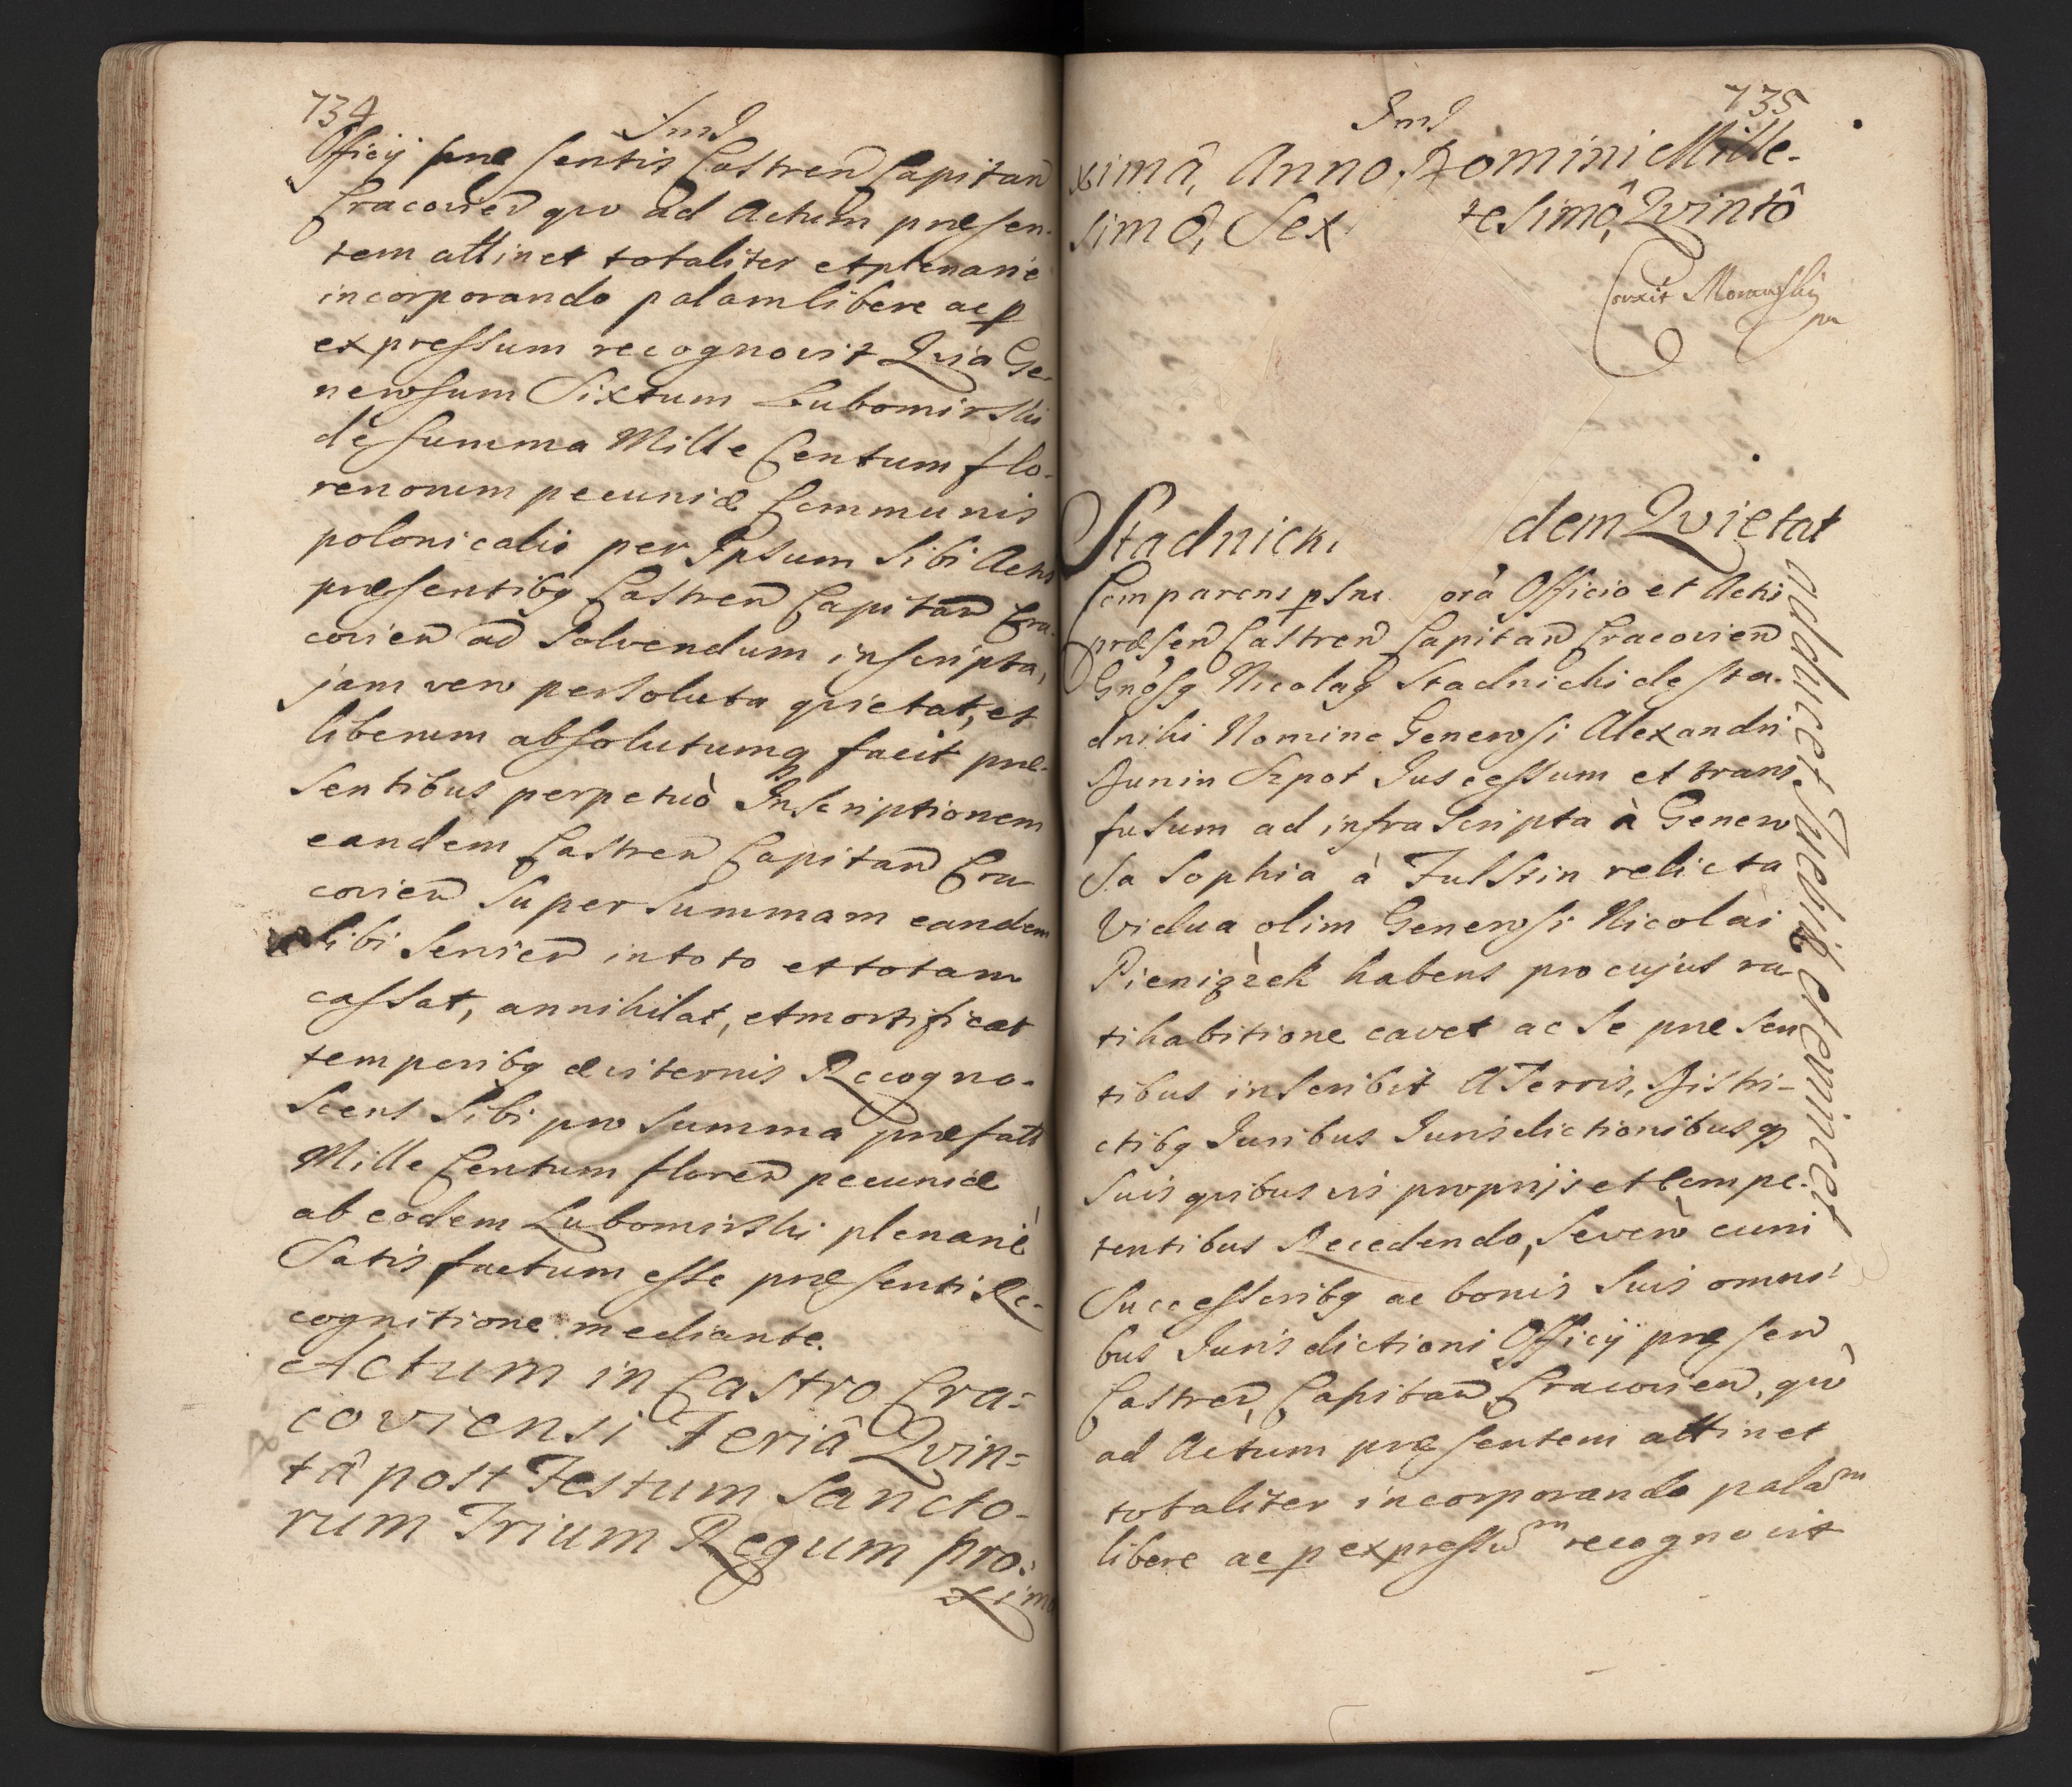 734
Officij præsentis Castren Capitan
Cracovien quo ad Actum præsen-
tem attinet totaliter et plenarie
incorporando palam libere ac p
expressum recognovit Qvia Ge-
nerosum Sixtum Lubomirski
de summa Mille Centum flo-
renorum pecuniæ Communis
polonicalis per Ipsum Sibi Actis
præsentibq Castren Capitan Cra-
covien ad Solvendum inscripta,
jam vero persoluta quietat, et
liberum absolutumq facit præ-
sentibus perpetuò Inscriptionem
eandem Castren Capitan Cra-
covien Super Summam eandem
sibi Servien in toto et totam
cassat, annihilat, et mortificat
temporibq æviternis Recogno-
scens Sibi pro Summa præfata
Mille Centum floren pecuniæ
ab eodem Lubomirski plenariè
Satisfactum esse præsenti Re-
cognitione mediante.
Actum in Castro Cra=
coviensi Feriâ Qvin=
tâ post Festum Sancto-
rum Trium Regum pro=
xima
735
ximâ, Anno, Domini Mille-
simô, Sex tesimô, Qvintô
Stadnicki dem Qvietat
Comparens psnr orà Officio et Actis
præsen Castren Capitan Cracovien
Gnosq Nicolaq Stadnicki de Sta-
dniki Nomine Generosi Alexandri
Junin Szpot Jus cessum et trans
fusum ad infra Scripta à Genero
Sa Sophia à Fulstin relicta
Vidua olim Generosi Nicolai
Pieniązek habens pro cujus ra
tihabitione cavet ac Se præsen
tibus inscribit A Terris, Distri-
ctibq Juribus Jurisdictionibusq
Suis quibusvis proprijs et Compe-
tentibus Recedendo, Severò cum
Successoribq ac bonis Suis omni
bus Jurisdictioni Officij præsen
Castren, Capitan, Cracovien, quò
ad Actum præsentem attinet
totaliter incorporando palam
libere ac p expressum recognovit
adducet Juebit et evincet